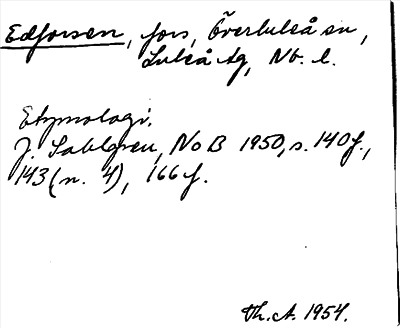 Edforsen, fors, Överluleå sn,
Luleå tg, Nb. l.
Etymologi.
J. Sahlgren, NoB 1950, s. 140 f.,
143 (n. 4), 166 f.
Th. A. 1954.